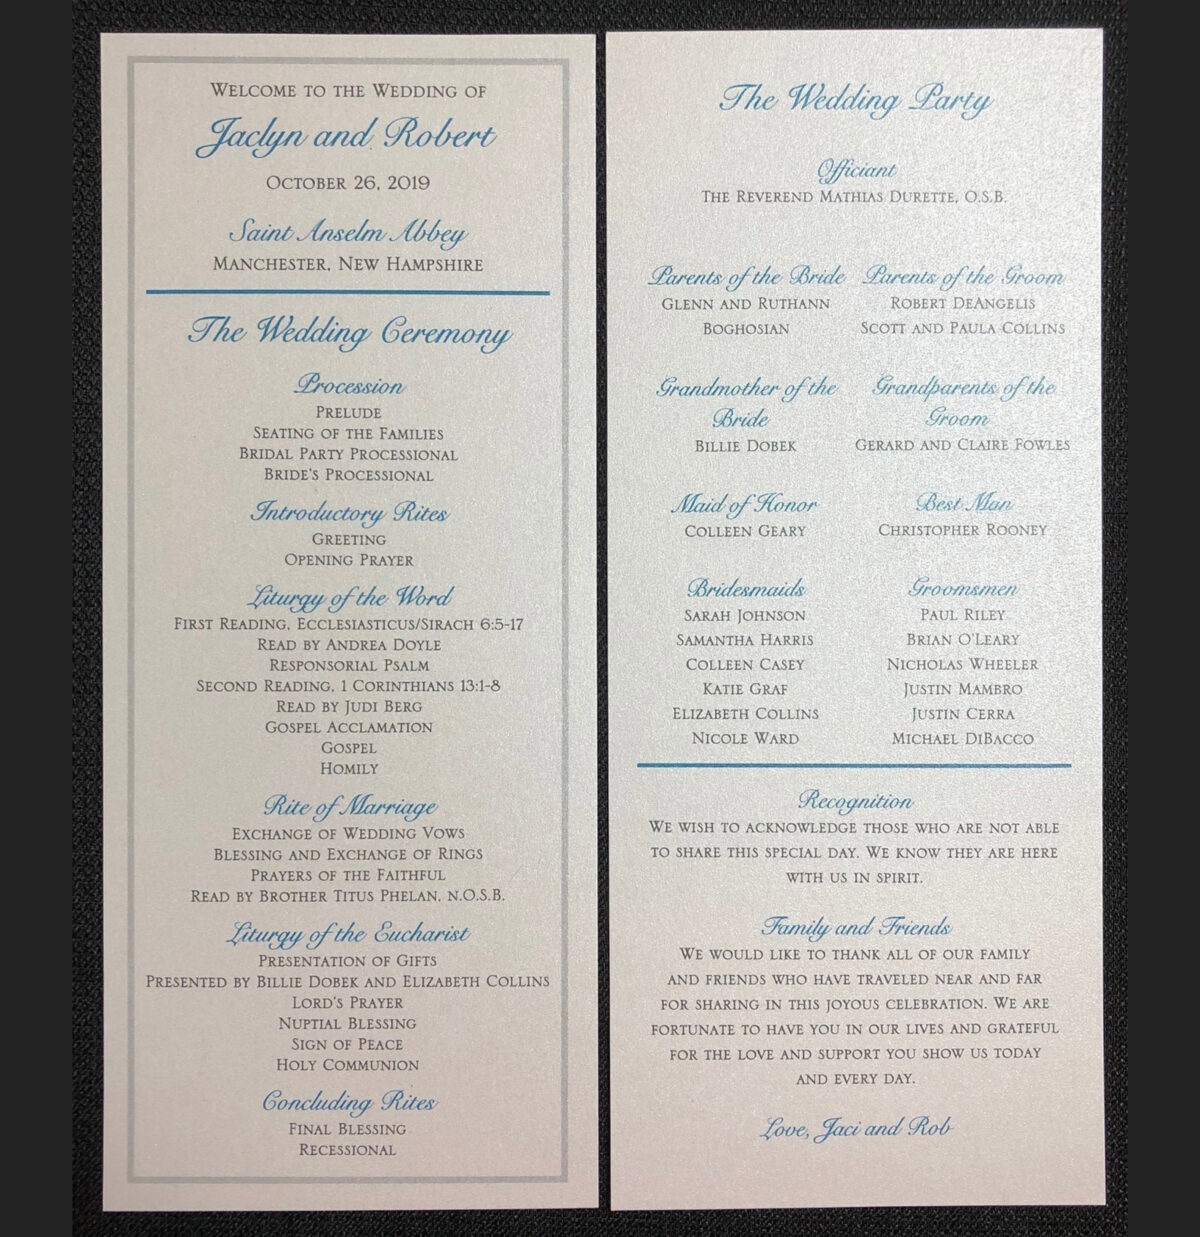 Welcome to the Wedding of
Jaclyn and Robert
October 26, 2019
Saint Anselm Abbey
Manchester, New Hampshire
The Wedding Ceremony
Procession
Prelude
Seating of the Families
Bridal Party Processional
Bride's Processional
Introductory Rites
Greeting
Opening Prayer
Liturgy of the Word
First Reading, Ecclesiasticus/Sirach 6:5-17
Read by Andrea Doyle
Responsorial Psalm
Second Reading, 1 Corinthians 13:1-8
Read by Judi Berg
Gospel Acclamation
Gospel
Homily
Rite of Marriage
Exchange of Wedding Vows
Blessing and Exchange of Rings
Prayers of the Faithful
Read by Brother Titus Phelan, n.O.S.B.
Liturgy of the Eucharist
Presentation of Gifts
Presented by Billie Dobek and Elizabeth Collins
Lord's Prayer
Nuptial Blessing
Sign of Peace
Holy Communion
Concluding Rites
Final Blessing
Recessional
The Wedding Party
Officiant
The Reverend Mathias Durette, O.S.B.
Parents of the Bride
Glenn and Ruthann
Boghosian
Parents of the Groom
Robert DeAngelis
Scott and Paula Collins
Grandmother of the
Bride
Billie Dobek
Grandparents of the
Groom
Gerard and Claire Fowles
Maid of Honor
Colleen Geary
Best Man
Christopher Rooney
Bridesmaids
Sarah Johnson
Samantha Harris
Colleen Casey
Katie Graf
Elizabeth Collins
Nicole Ward
Groomsmen
Paul Riley
Brian O'Leary
Nicholas Wheeler
Justin Mambro
Justin Cerra
Michael DiBacco
Recognition
We wish to acknowledge those who are not able
to share this special day. We know they are here
with us in spirit.
Family and Friends
We would like to thank all of our family
and friends who have traveled near and far
for sharing in this joyous celebration. We are
fortunate to have you in our lives and grateful
for the love and support you show us today
and every day.
Love, Jaci and Rob